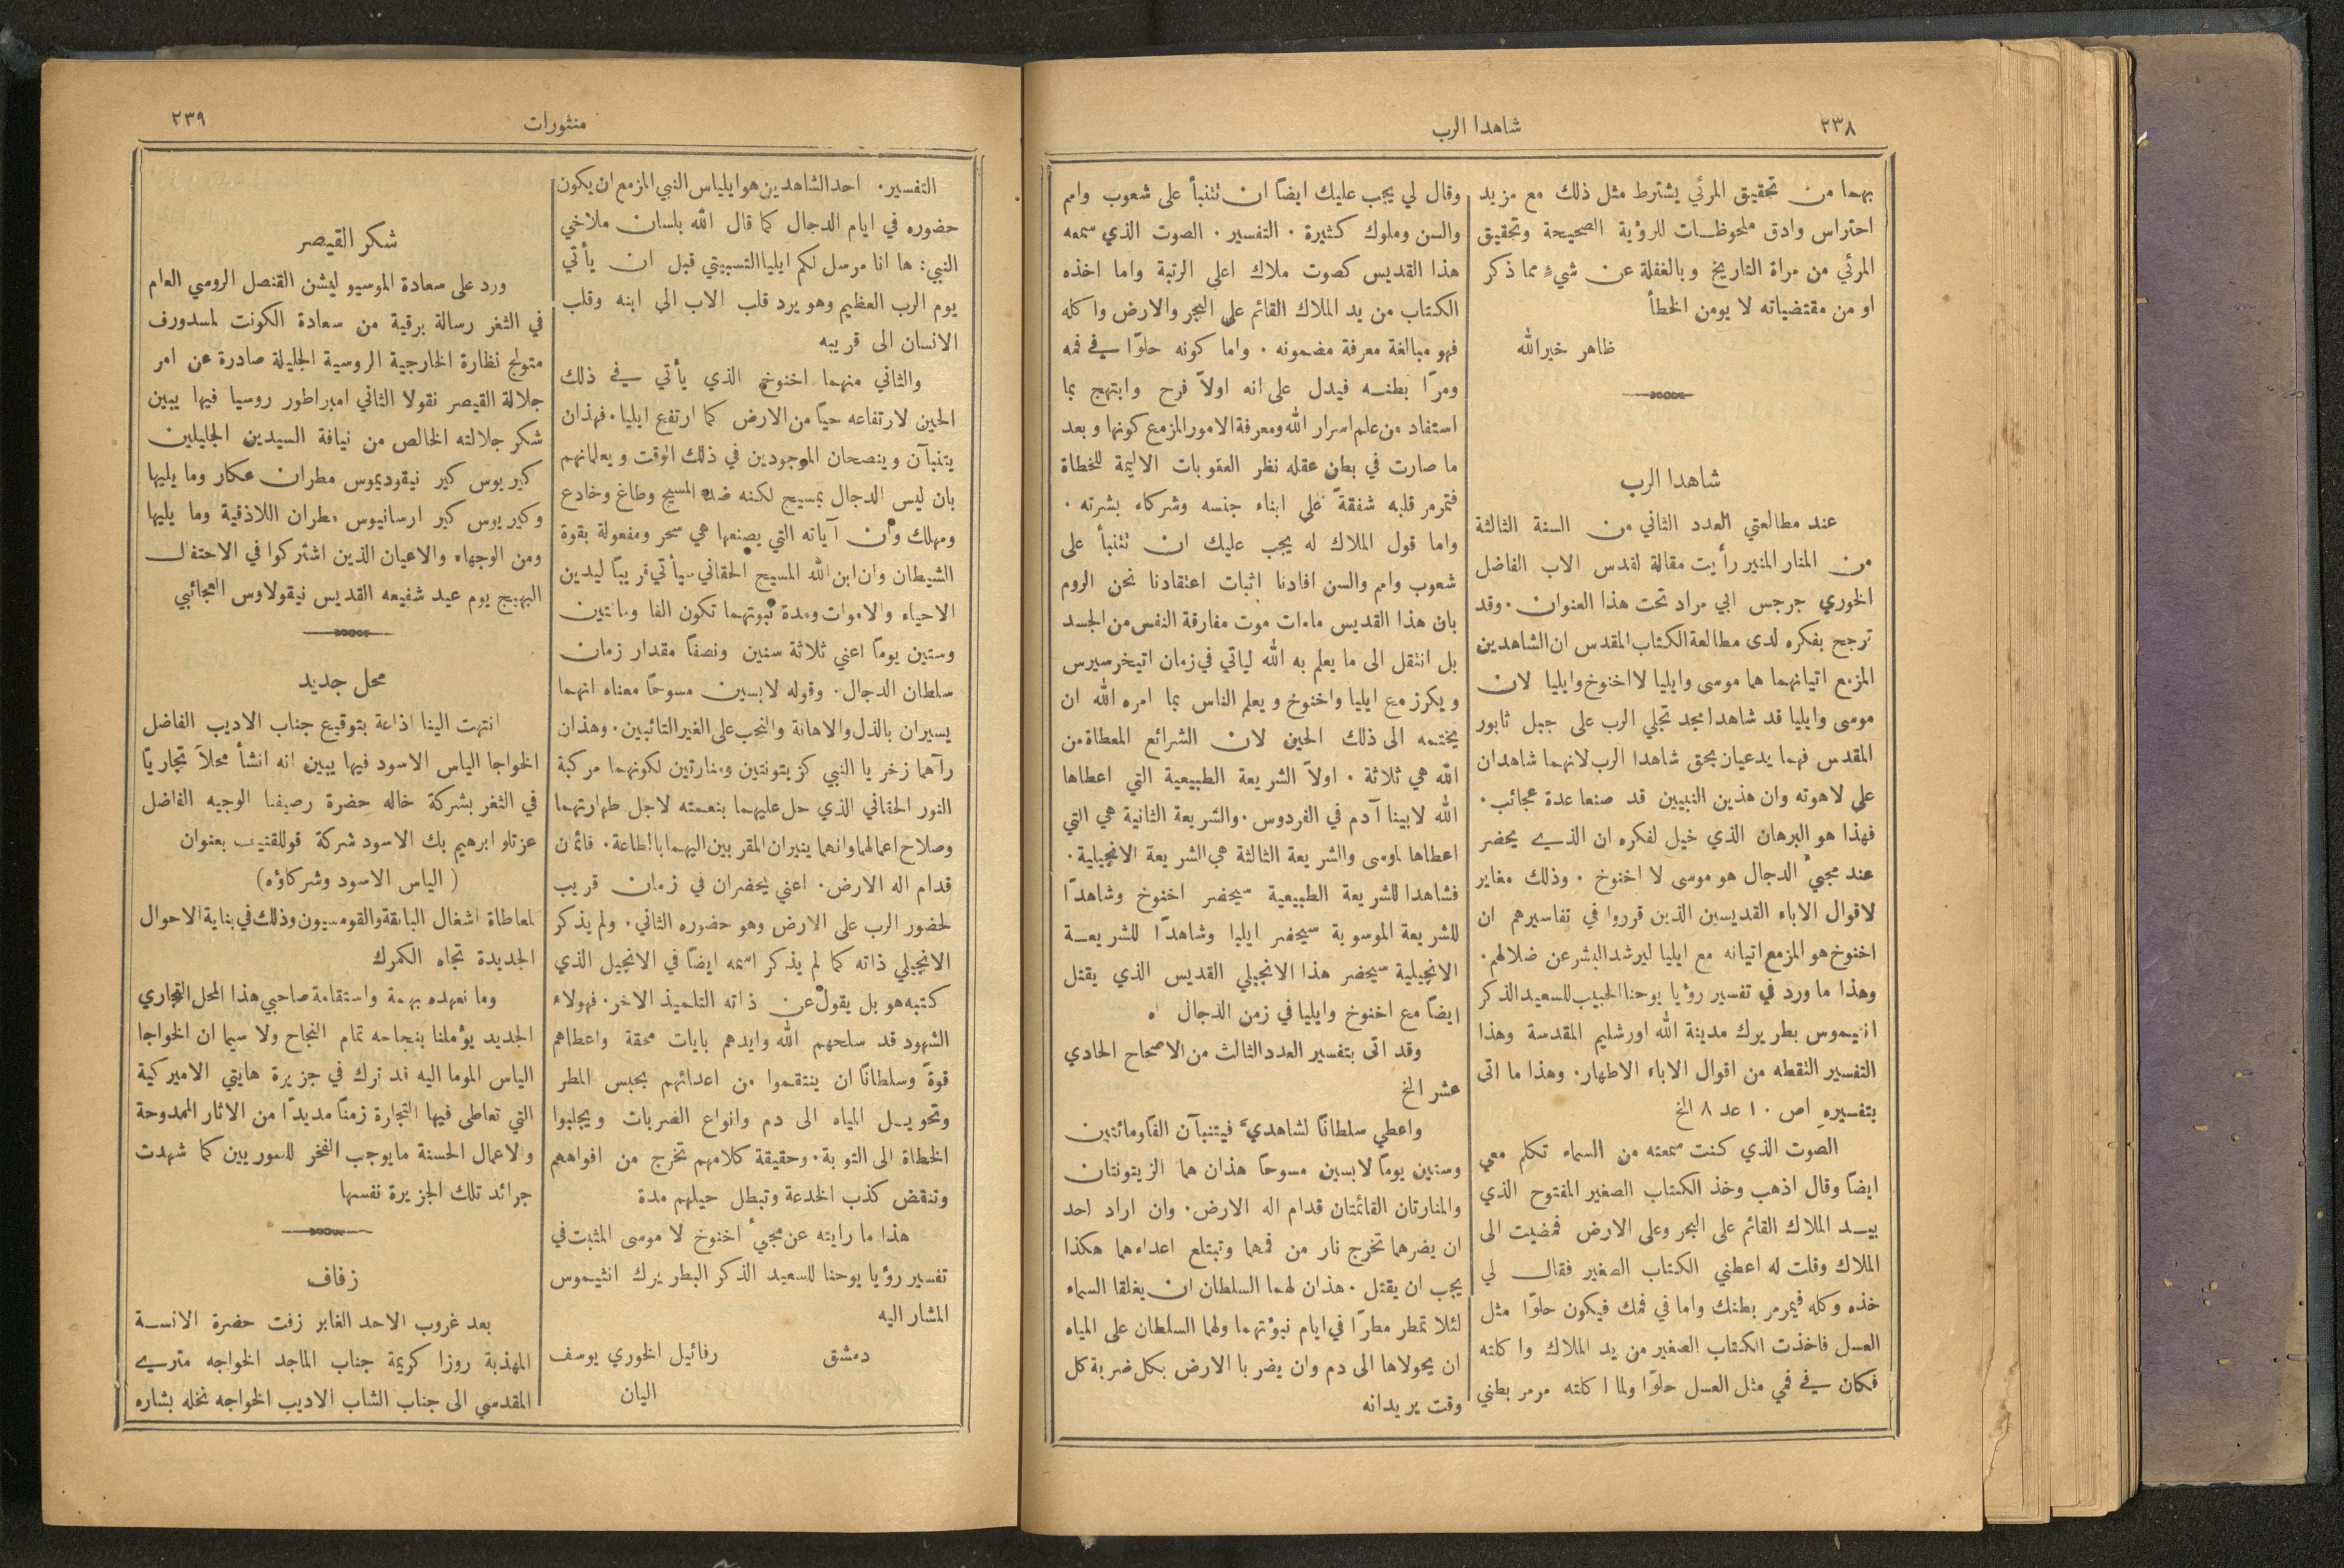 ٢٣٨
شاهدا الرب
بهما من تحقيق المرئي يشترط مثل ذلك مع مزيد
احتراس وادق ملحوظات للرؤية الصحيحة وتحقيق
المرئي من مراة التاريخ وبالغفلة عن شيءٍ مما ذكر
او من مقتضياته لا يومن الخطأ
ظاهر خيرالله
شاهدا الرب
عند مطالعتي العدد الثاني من السنة الثالثة
من المنار المنير رأيت مقالة لقدس الاب الفاضل
الخوري جرجس ابي مراد تحت هذا العنوان. وقد
ترجح بفكره لدى مطالعة الكتاب المقدس ان الشاهدين
المزمع اتيانهما هما موسى وايليا لا اخنوخ وايليا لان
موسى وايليا قد شاهدا مجد تجلي الرب على جبل ثابور
المقدس فهما يدعيان بحق شاهدا الرب لانهما شاهدان
على لاهوته وان هذين النبيين قد صنعا عدة عجائب.
فهذا هو البرهان الذي خيل لفكره ان الذي يحضر
عند مجيء الدجال هو موسى لا اخنوخ. وذلك مغاير
لاقوال الاباء القديسين الذين قرروا في تفاسيرهم ان
اخنوخ هو المزمع اتيانه مع ايليا ليرشد البشر عن ضلالهم.
وهذا ما ورد في تفسير رؤيا يوحنا الحبيب للسعيد الذكر
انثيموس بطريرك مدينة الله اورشليم المقدسة وهذا
التفسير التقطه من اقوال الاباء الاطهار. وهذا ما اتى
بتفسيرهِ اص ١٠ عد ٨ الخ
الصوت الذي كنت سمعته من السماء تكلم معي
ايضاً وقال اذهب وخذ الكتاب الصغير المفتوح الذي
بيد الملاك القائم على البحر وعلى الارض فمضيت الى
الملاك وقلت له اعطني الكتاب الصغير فقال لي
خذه وكله فيمرمر بطنك واما في فمك فيكون حلوًا مثل
العسل فاخذت الكتاب الصغير من يد الملاك واكلته
فكان في فمي مثل العسل حلوًا ولما اكلته مرمر بطني
وقال لي يجب عليك ايضاً ان تتنبأ على شعوب وامم
والسن وملوك كثيرة. التفسير. الصوت الذي سمعه
هذا القديس كصوت ملاك اعلى الرتبة واما اخذه
الكتاب من يد الملاك القائم على البحر والارض واكله
فهو مبالغة معرفة مضمونه. واما كونه حلوًا في فمه
ومرًا بطنه فيدل على انه اولاً فرح وابتهج بما
استفاد من علم اسرار الله ومعرفة الامور المزمع كونها وبعد
ما صارت في بطن عقله نظر العقوبات الاليمة للخطاة
فتمرمر قلبه شفقةً على ابناء جنسه وشركاء بشرته.
واما قول الملاك له يجب عليك ان تتنبأ على
شعوب وامم والسن افادنا اثبات اعتقادنا نحن الروم
بان هذا القديس ما مات موت مفارقة النفس من الجسد
بل انتقل الى ما يعلم به الله لياتي في زمان اتيخرسيرس
ويكرز مع ايليا واخنوخ ويعلم الناس بما امره الله ان
يختمه الى ذلك الحين لان الشرائع المعطاة من
الله هي ثلاثة. اولاً الشريعة الطبيعية التي اعطاها
الله لابينا آدم في الفردوس. والشريعة الثانية هي التي
اعطاها لموسى والشريعة الثالثة هي الشريعة الانجيلية.
فشاهدا للشريعة الطبيعية سيحضر اخنوخ وشاهدًا
للشريعة الموسوية سيحضر ايليا وشاهدًا للشريعة
الانجيلية سيحضر هذا الانجيلي القديس الذي يقتل
ايضاً مع اخنوخ وايليا في زمن الدجال اه
وقد اتى بتفسير العدد الثالث من الاصحاح الحادي
عشر الخ
واعطي سلطانًا لشاهديَّ فيتنبآن الفًا ومائتين
وستين يومًا لابسين مسوحًا هذان هما الزيتونتان
والمنارتان القائمتان قدام اله الارض. وان اراد احد
ان يضرهما تخرج نار من فمهما وتبتلع اعداءهما هكذا
يجب ان يقتل. هذان لهما السلطان ان يغلقا السماء
لئلا تمطر مطرًا في ايام نبؤتهما ولهما السلطان على المياه
ان يحولاها الى دم وان يضربا الارض بكل ضربة كل
وقت يريدانه
منثورات
٢٣٩
التفسير. احد الشاهدين هو ايلياس النبي المزمع ان يكون
حضوره في ايام الدجال كما قال الله بلسان ملاخي
النبي: ها انا مرسل لكم ايليا التسبيتي قبل ان يأتي
يوم الرب العظيم وهو يرد قلب الاب الى ابنه وقلب
الانسان الى قريبه
والثاني منهما اخنوخ الذي يأتي في ذلك
الحين لارتفاعه حيًا من الارض كما ارتفع ايليا. فهذان
يتنبآن وينصحان الموجودين في ذلك الوقت ويعلمانهم
بان ليس الدجال بمسيح لكنه ضد المسيح وطاغ وخادع
ومهلك وان آياته التي يصنعها هي سحر ومفعولة بقوة
الشيطان وان ابن الله المسيح الحقاني سيأتي قريبًا ليدين
الاحياء والاموات ومدة نبوتهما تكون الفا ومائتين
وستين يومًا اعني ثلاثة سنين ونصفًا مقدار زمان
سلطان الدجال. وقوله لابسين مسوحًا معناه انهما
يسيران بالذل والاهانة والنحب على الغير التائبين. وهذان
رآهما زخريا النبي كزيتونتين ومنارتين لكونهما مركبة
النور الحقاني الذي حل عليهما بنعمته لاجل طهارتهما
وصلاح اعمالهما وانهما ينيران المقربين اليهما بالطاعة. قائمان
قدام اله الارض. اعني يحضران في زمان قريب
لحضور الرب على الارض وهو حضوره الثاني. ولم يذكر
الانجيلي ذاته كما لم يذكر اسمه ايضًا في الانجيل الذي
كتبه هو بل يقول عن ذاته التلميذ الاخر. فهولاء
الشهود قد سلحهم الله وايدهم بايات محقة واعطاهم
قوةً وسلطانًا ان ينتقموا من اعدائهم بحبس المطر
وتحويل المياه الى دم وانواع الضربات ويجلبوا
الخطاة الى التوبة. وحقيقة كلامهم تخرج من افواههم
وتنقض كذب الخدعة وتبطل حيلهم مدة
هذا ما رايته عن مجيء اخنوخ لا موسى المثبت في
تفسير رؤيا يوحنا للسعيد الذكر البطريرك انثيموس
المشار اليه
دمشق رفائيل الخوري يوسف
اليان
شكر القيصر
ورد على سعادة الموسيو ليشن القنصل الروسي العام
في الثغر رسالة برقية من سعادة الكونت لمسدورف
متولج نظارة الخارجية الروسية الجليلة صادرة عن امر
جلالة القيصر نقولا الثاني امبراطور روسيا فيها يبين
شكر جلالته الخالص من نيافة السيدين الجليلين
كيريوس كير نيقوديموس مطران عكار وما يليها
وكيريوس كير ارسانيوس مطران اللاذقية وما يليها
ومن الوجهاء والاعيان الذين اشتركوا في الاحتفال
البهيج يوم عيد شفيعه القديس نيقولاوس العجائبي
محل جديد
انتهت الينا اذاعة بتوقيع جناب الاديب الفاضل
الخواجا الياس الاسود فيها يبين انه انشأ محلاً تجاريًا
في الثغر بشركة خاله حضرة رصيفنا الوجيه الفاضل
عزتلو ابرهيم بك الاسود شركة قوللقتيف بعنوان
(الياس الاسود وشركاؤه)
لمعاطاة اشغال البانقة والقومسيون وذلك في بناية الاحوال
الجديدة تجاه الكمرك
وما نعهده بهمة واستقامة صاحبي هذا المحل التجاري
الجديد يؤملنا بنجاحه تمام النجاح ولا سيما ان الخواجا
الياس الموما اليه قد ترك في جزيرة هايتي الاميركية
التي تعاطى فيها التجارة زمنًا مديدًا من الاثار الممدوحة
والاعمال الحسنة ما يوجب الفخر للسوريين كما شهدت
جرائد تلك الجزيرة نفسها
زفاف
بعد غروب الاحد الغابر زفت حضرة الانسة
المهذبة روزا كريمة جناب الماجد الخواجه متري
المقدسي الى جناب الشاب الاديب الخواجه نخله بشاره